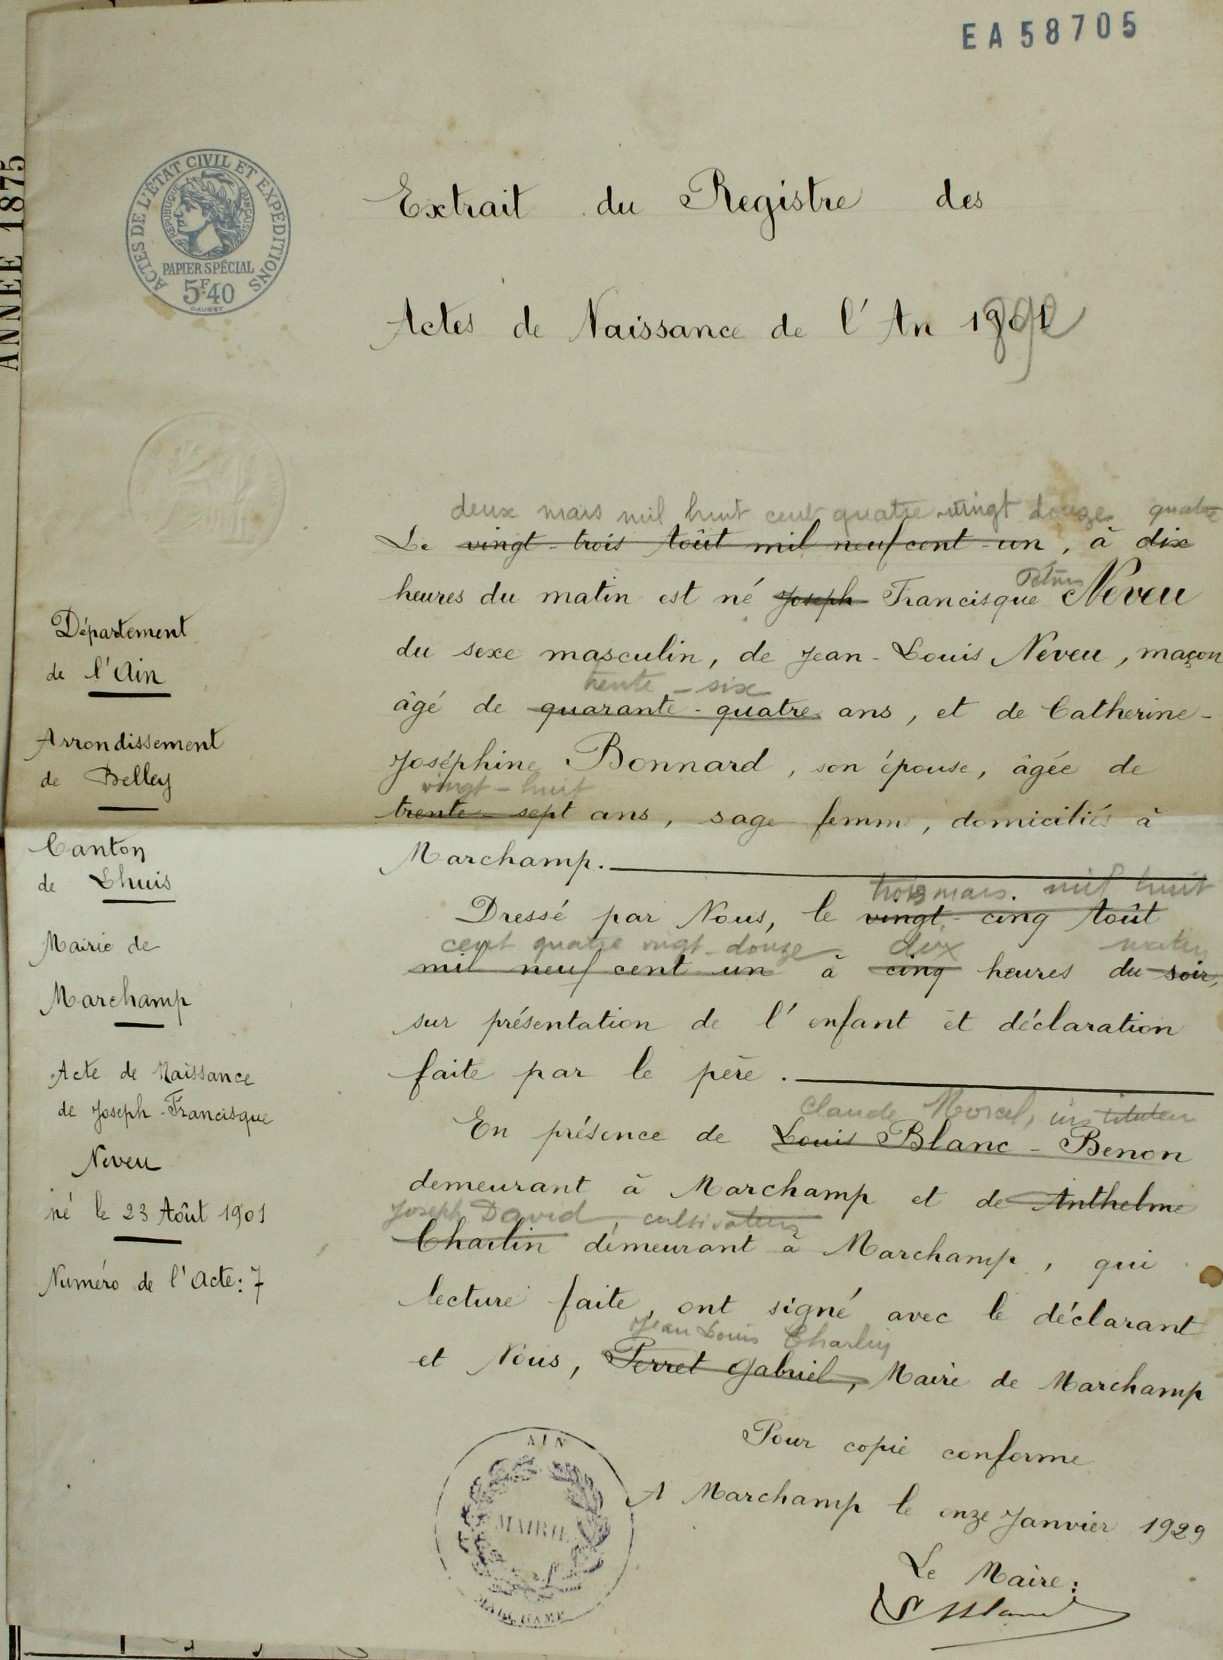 EA58705
ANNEE 1875
ACTES DE L'ÉTAT CIVIL ET EXPEDITIONS
RÉPUBLIQUE FRANÇAISE
PAPIER SPÉCIAL
5F.40
Extrait du Registre des
Actes de Naissance de l'An 1901
892
deux mars mil huit cent quatre-vingt douze quatre
Le vingt-trois Août mil neuf cent-un, à dix
heures du matin est né Joseph Francisque Pétrus Neveu
du sexe masculin, de Jean-Louis Neveu, maçon
trente-six
âgé de quarante-quatre ans, et de Catherine-
Joséphine Bonnard, son épouse, âgée de
vingt-huit
trente-sept ans, sage femme, domiciliés à
Marchamp.
trois mars mil huit
Dressé par Nous, le vingt-cinq Août
cent quatre vingt-douze dix matin
mil neuf cent un à cinq heures du soir,
sur présentation de l'enfant et déclaration
faite par le père.
Claude Morcel, instituteur
En présence de Louis Blanc-Benon
demeurant à Marchamp et de Anthelme
Joseph David, cultivateur
Charlin demeurant à Marchamp, qui
lecture faite, ont signé avec le déclarant
Jean Louis Charlin
et Nous, Perret Gabriel, Maire de Marchamp
Pour copie conforme
A Marchamp le onze Janvier 1929
Le Maire:
Département
de l'Ain
Arrondissement
de Belley
Canton
de Lhuis
Mairie de
Marchamp
Acte de Naissance
de Joseph-Francisque
Neveu
né le 23 Août 1901
Numéro de l'Acte: 7
AIN
MAIRIE